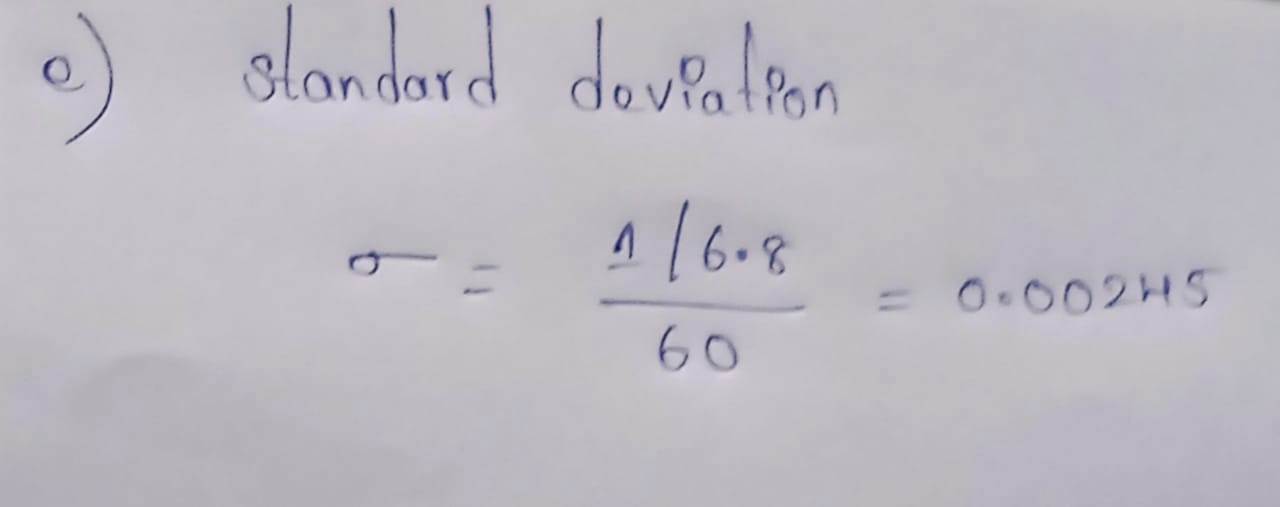 e) standard deviation
σ = 1/6.8 / 60 = 0.00245